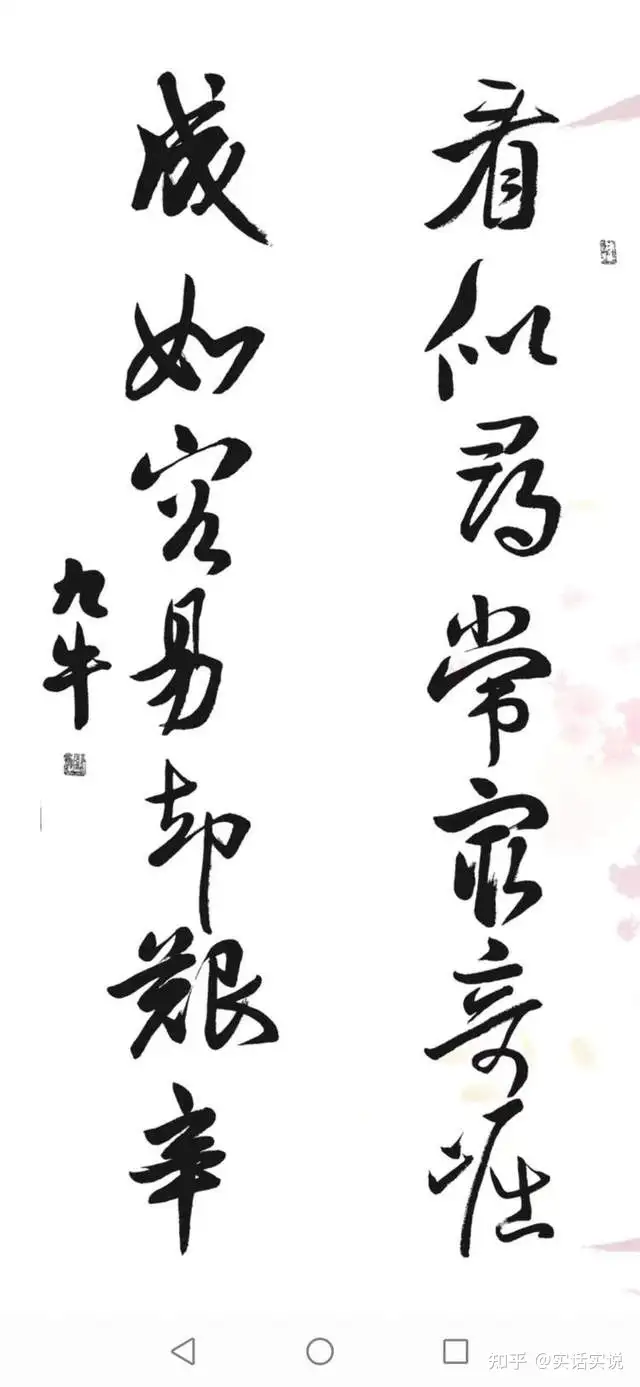 看似尋常最奇崛
成如容易却艱辛
九牛
知乎 @实话实说